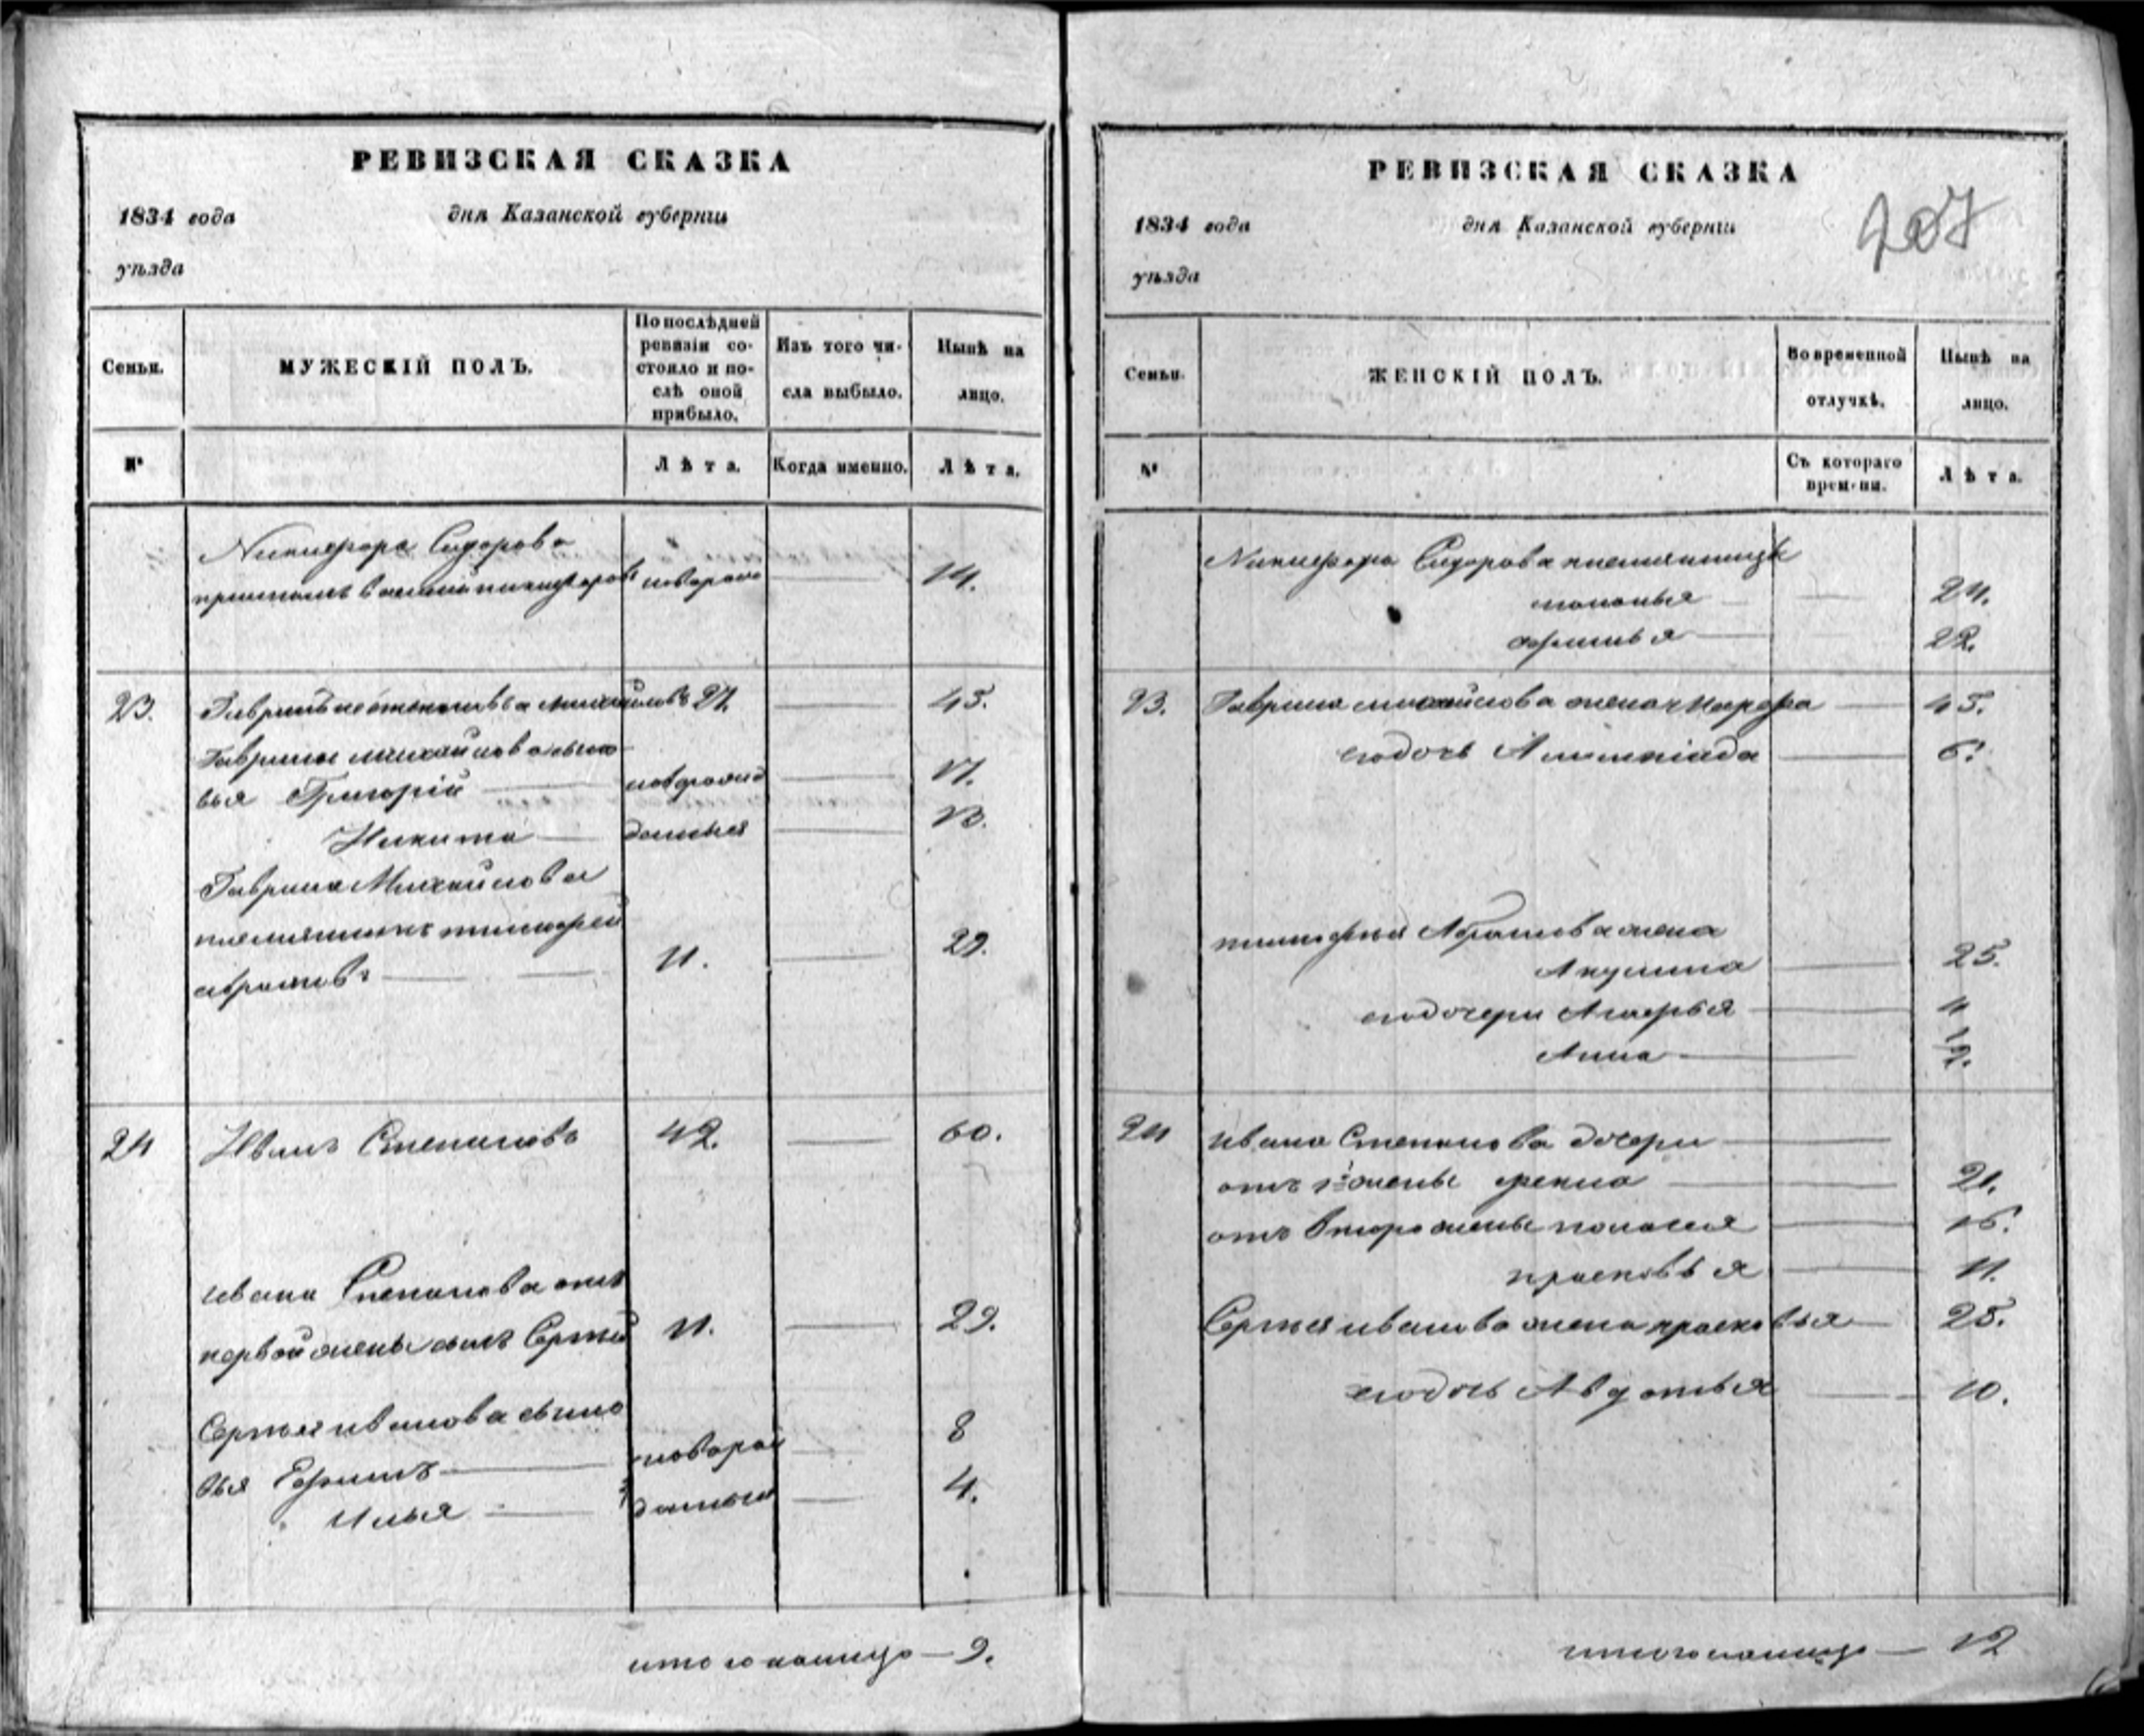 РЕВИЗСКАЯ СКАЗКА
1834 года дня Казанской губерніи
уѣзда
Семьи.
МУЖЕСКІЙ ПОЛЪ.
По послѣдней
ревизіи со-
стояло и по-
слѣ оной
прибыло.
Изъ того чи-
сла выбыло.
Нынѣ на
лицо.
№
Лѣта.
Когда именно.
Лѣта.
Никифора Сидорова
14.
23. Гаврилъ Михайловъ 27. 45.
Гаврилы Михайлова сыно
вья Григорій новорожд 17.
Никита данныя 13.
Гаврила Михайлова
племянникъ тимофей
абрамовъ 11. 29.
24 Иванъ Степановъ 42. 60.
ивана Степанова отъ
первой жены сынъ Сергей 11. 29.
Сергея иванова сыно
вья Ефимъ новорож 8
Илья данныя 4.
итого налицо — 9.
РЕВИЗСКАЯ СКАЗКА
1834 года дня Казанской губерніи
уѣзда
207
Семьи.
ЖЕНСКІЙ ПОЛЪ.
Во временной
отлучкѣ.
Нынѣ на
лицо.
№
Съ котораго
времени.
Лѣта.
Никифора Сидорова племянницы
24.
22.
23. Гаврила михайлова жена марфа 45.
его дочь Алимпіада 6.
тимофея Абрамова жена
Акулина 25.
его дочери Лукерья 4
Анна 1/2.
24 ивана Степанова дочери
отъ 1й жены фекла 21.
отъ второй жены 16.
прасковья 11.
Сергея иванова жена прасковья 28.
его дочь Авдотья 10.
итого налицо — 12